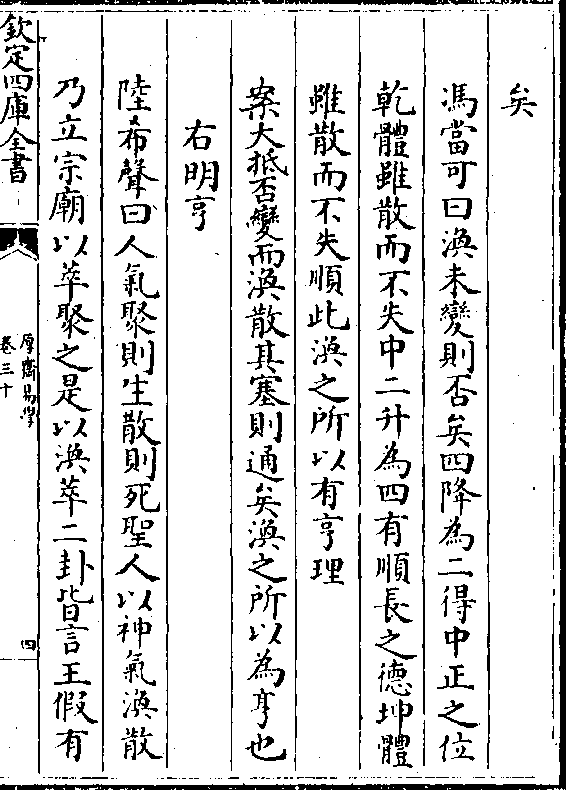 矣
馮當可曰渙未變則否矣四降為二得中正之位
乾體雖散而不失中二升為四有順長之德坤體
雖散而不失順此渙之所以有亨理
案大抵否變而渙散其塞則通矣渙之所以為亨也
右明亨
陸希聲曰人氣聚則生散則死聖人以神氣渙散
乃立宗廟以萃聚之是以渙萃二卦皆言王假有
欽定四庫全書
厚齋易學
卷三十
四